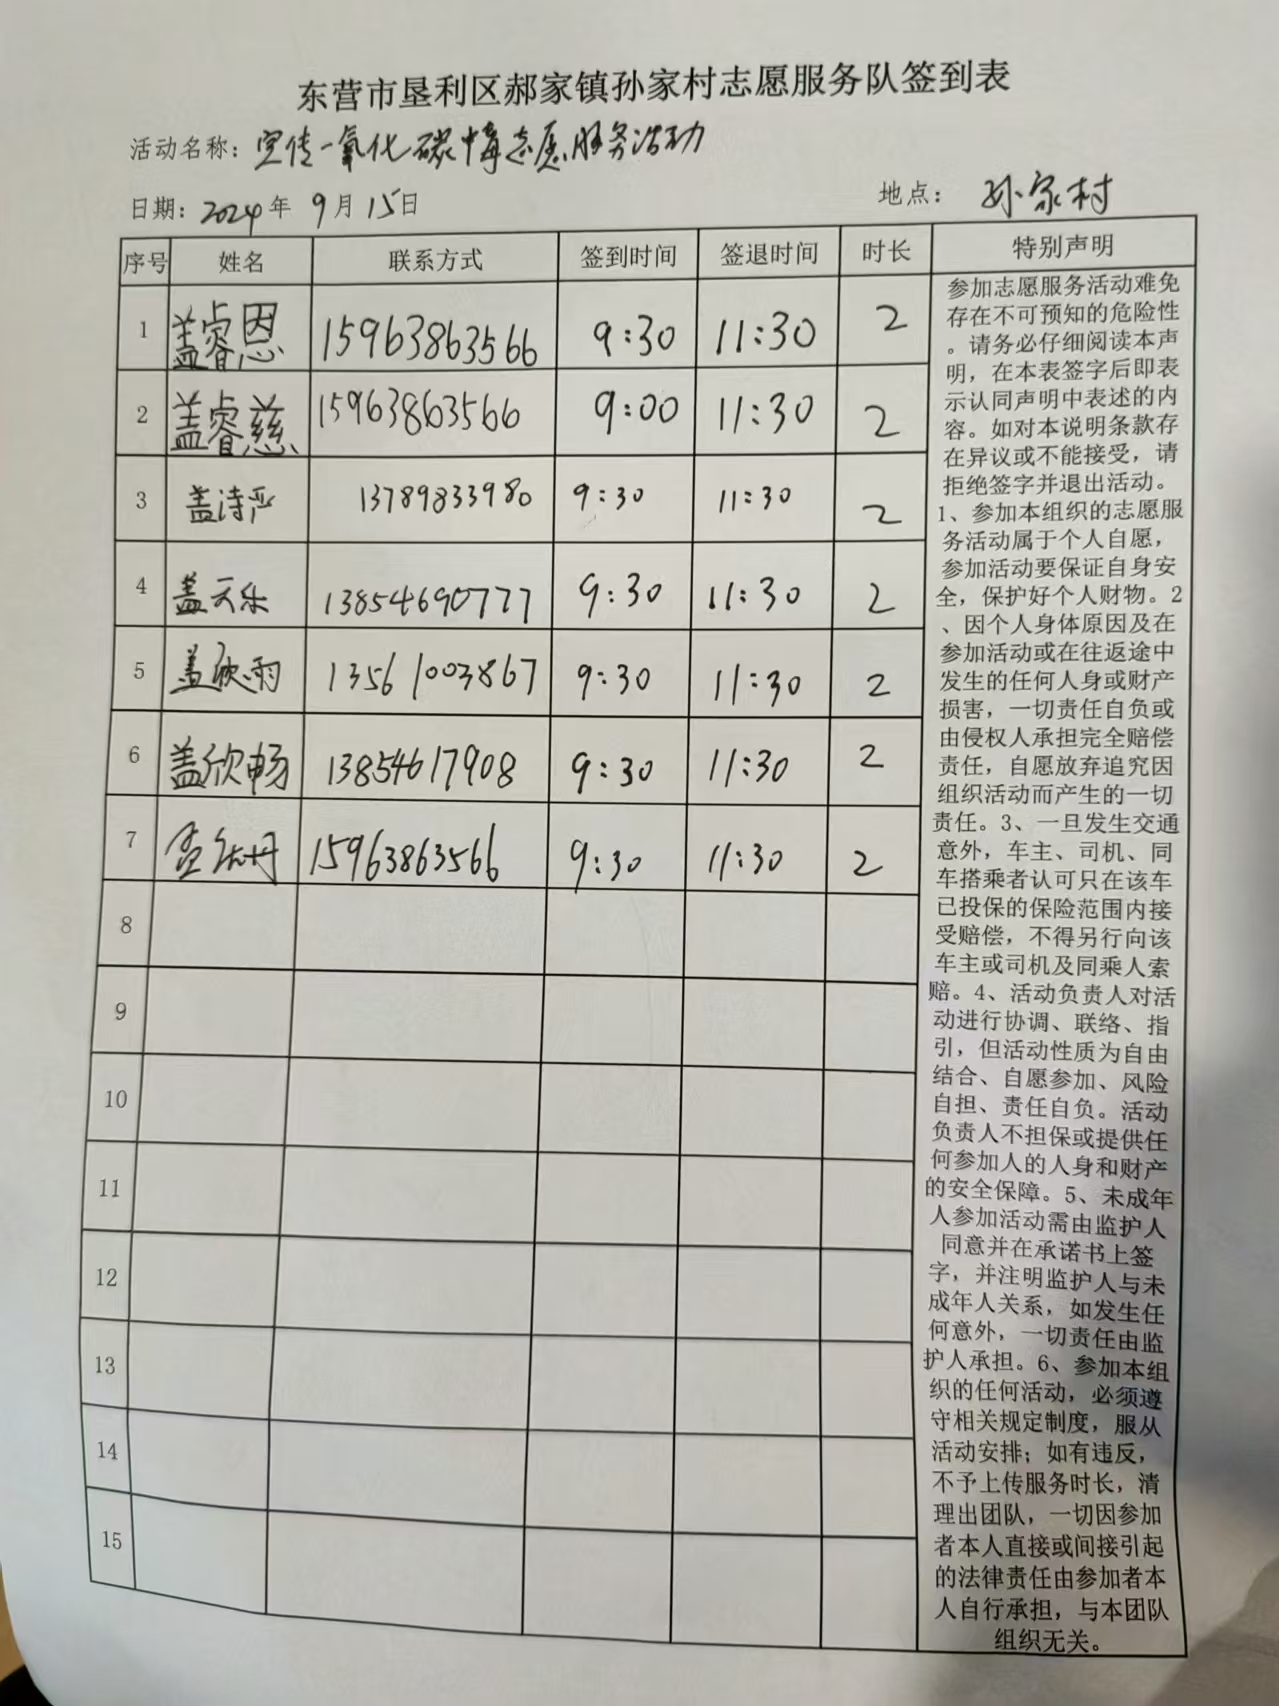 东营市垦利区郝家镇孙家村志愿服务队签到表
活动名称：宣传一氧化碳中毒志愿服务活动
日期：2024年 9月15日 地点：孙家村
序号 姓名 联系方式 签到时间 签退时间 时长 特别声明
1 盖睿恩 15963863566 9:30 11:30 2
2 盖睿慈 15963863566 9:00 11:30 2
3 盖诗严 13789833980 9:30 11:30 2
4 盖天乐 13854690777 9:30 11:30 2
5 盖欣雨 13561003867 9:30 11:30 2
6 盖欣畅 13854617908 9:30 11:30 2
7 15963863566 9:30 11:30 2
8
9
10
11
12
13
14
15
参加志愿服务活动难免
存在不可预知的危险性
。请务必仔细阅读本声
明，在本表签字后即表
示认同声明中表述的内
容。如对本说明条款存
在异议或不能接受，请
拒绝签字并退出活动。
1、参加本组织的志愿服
务活动属于个人自愿，
参加活动要保证自身安
全，保护好个人财物。2
、因个人身体原因及在
参加活动或在往返途中
发生的任何人身或财产
损害，一切责任自负或
由侵权人承担完全赔偿
责任，自愿放弃追究因
组织活动而产生的一切
责任。3、一旦发生交通
意外，车主、司机、同
车搭乘者认可只在该车
已投保的保险范围内接
受赔偿，不得另行向该
车主或司机及同乘人索
赔。4、活动负责人对活
动进行协调、联络、指
引，但活动性质为自由
结合、自愿参加、风险
自担、责任自负。活动
负责人不担保或提供任
何参加人的人身和财产
的安全保障。5、未成年
人参加活动需由监护人
同意并在承诺书上签
字，并注明监护人与未
成年人关系，如发生任
何意外，一切责任由监
护人承担。6、参加本组
织的任何活动，必须遵
守相关规定制度，服从
活动安排；如有违反，
不予上传服务时长，清
理出团队，一切因参加
者本人直接或间接引起
的法律责任由参加者本
人自行承担，与本团队
组织无关。